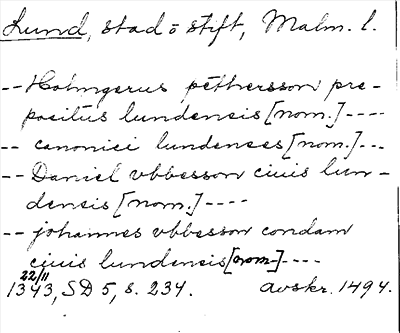 Lund, stad o stift, Malm. l.
-- Holmgerus pethersson pre-
positus lundensis [nom.] ----
-- canonici lundenses [nom.] ---
-- Daniel vbbesson ciuis lun-
densis [nom.] ----
-- johannes vbbesson condam
ciuis lundensis [nom.] ----
22/11
1343, SD 5, s. 234. avskr. 1494.